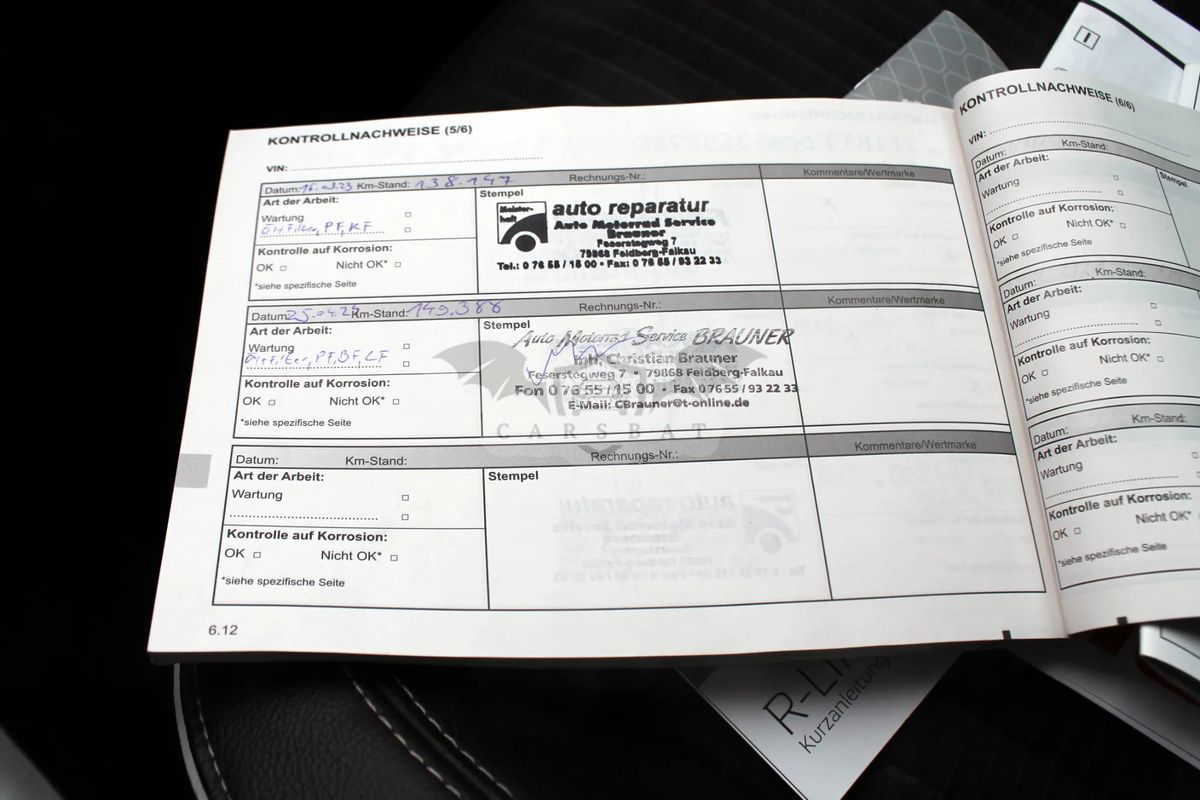 KONTROLLNACHWEISE (5/6)
VIN:
Datum: 16.03.23 Km-Stand: 138.147 Rechnungs-Nr.: Kommentare/Wertmarke
Art der Arbeit:
Wartung
Öl+Filter, PF, KF
Kontrolle auf Korrosion:
OK Nicht OK*
*siehe spezifische Seite
Stempel
Meister-
haft
auto reparatur
Auto Motorrad Service
Brauner
Feserstegweg 7
79868 Feldberg-Falkau
Tel.: 0 76 55 / 15 00 • Fax: 0 76 55 / 93 22 33
Datum: 25.04.24 Km-Stand: 149.388 Rechnungs-Nr.: Kommentare/Wertmarke
Art der Arbeit:
Wartung
Öl+Filter, PF, BF, LF
Kontrolle auf Korrosion:
OK Nicht OK*
*siehe spezifische Seite
Stempel
Auto Motorrad Service BRAUNER
Inh. Christian Brauner
Feserstegweg 7 - 79868 Feldberg-Falkau
Fon 0 76 55 / 15 00 - Fax 0 76 55 / 93 22 33
E-Mail: CBrauner@t-online.de
CARSBAT
Datum: Km-Stand: Rechnungs-Nr.: Kommentare/Wertmarke
Art der Arbeit:
Wartung
Kontrolle auf Korrosion:
OK Nicht OK*
*siehe spezifische Seite
Stempel
6.12
KONTROLLNACHWEISE (6/6)
VIN:
Datum: Km-Stand:
Art der Arbeit:
Wartung
Stempel
Kontrolle auf Korrosion:
OK Nicht OK*
*siehe spezifische Seite
Datum: Km-Stand:
Art der Arbeit:
Wartung
Kontrolle auf Korrosion:
OK Nicht OK*
*siehe spezifische Seite
Datum: Km-Stand:
Art der Arbeit:
Wartung
Kontrolle auf Korrosion:
OK Nicht OK*
*siehe spezifische Seite
I
Kurzanleitung